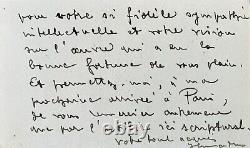 pour votre si fidèle sympathie
intellectuelle et votre vision
sur l'œuvre qui a eu la
bonne fortune de vous plaire.
Et permettez-moi, à ma
prochaine arrivée à Paris,
de vous remercier autrement
que par l'                ici scriptural.
votre tout acquis